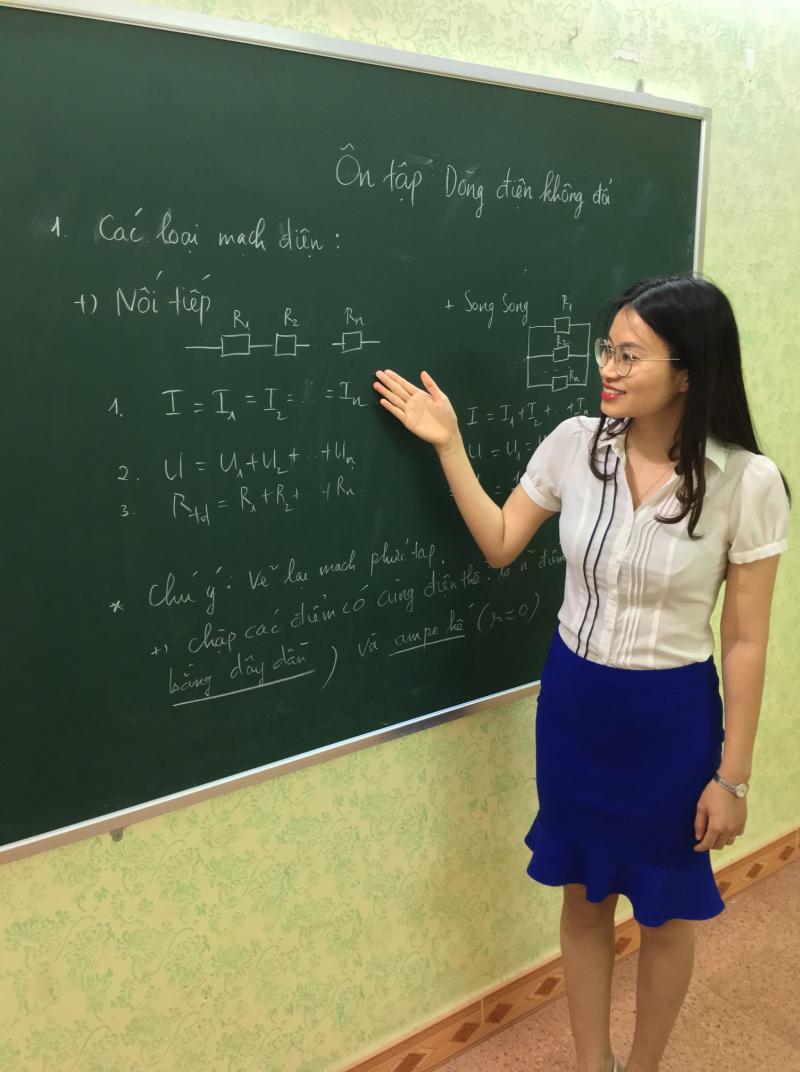 Ôn tập Dòng điện không đổi
1. Các loại mạch điện :
+) Nối tiếp
R1 R2 Rn
1. I = I1 = I2 = ... = In
2. U = U1 + U2 + ... + Un
3. Rtđ = R1 + R2 + ... + Rn
+ Song Song
R1
R2
Rn
I = I1 + I2 + ... + In
U = U1 =
* Chú ý : Vẽ lại mạch phức tạp.
+) chập các điểm có cùng điện thế : là n điểm
bằng dây dẫn ) và ampe kế (r≈0)